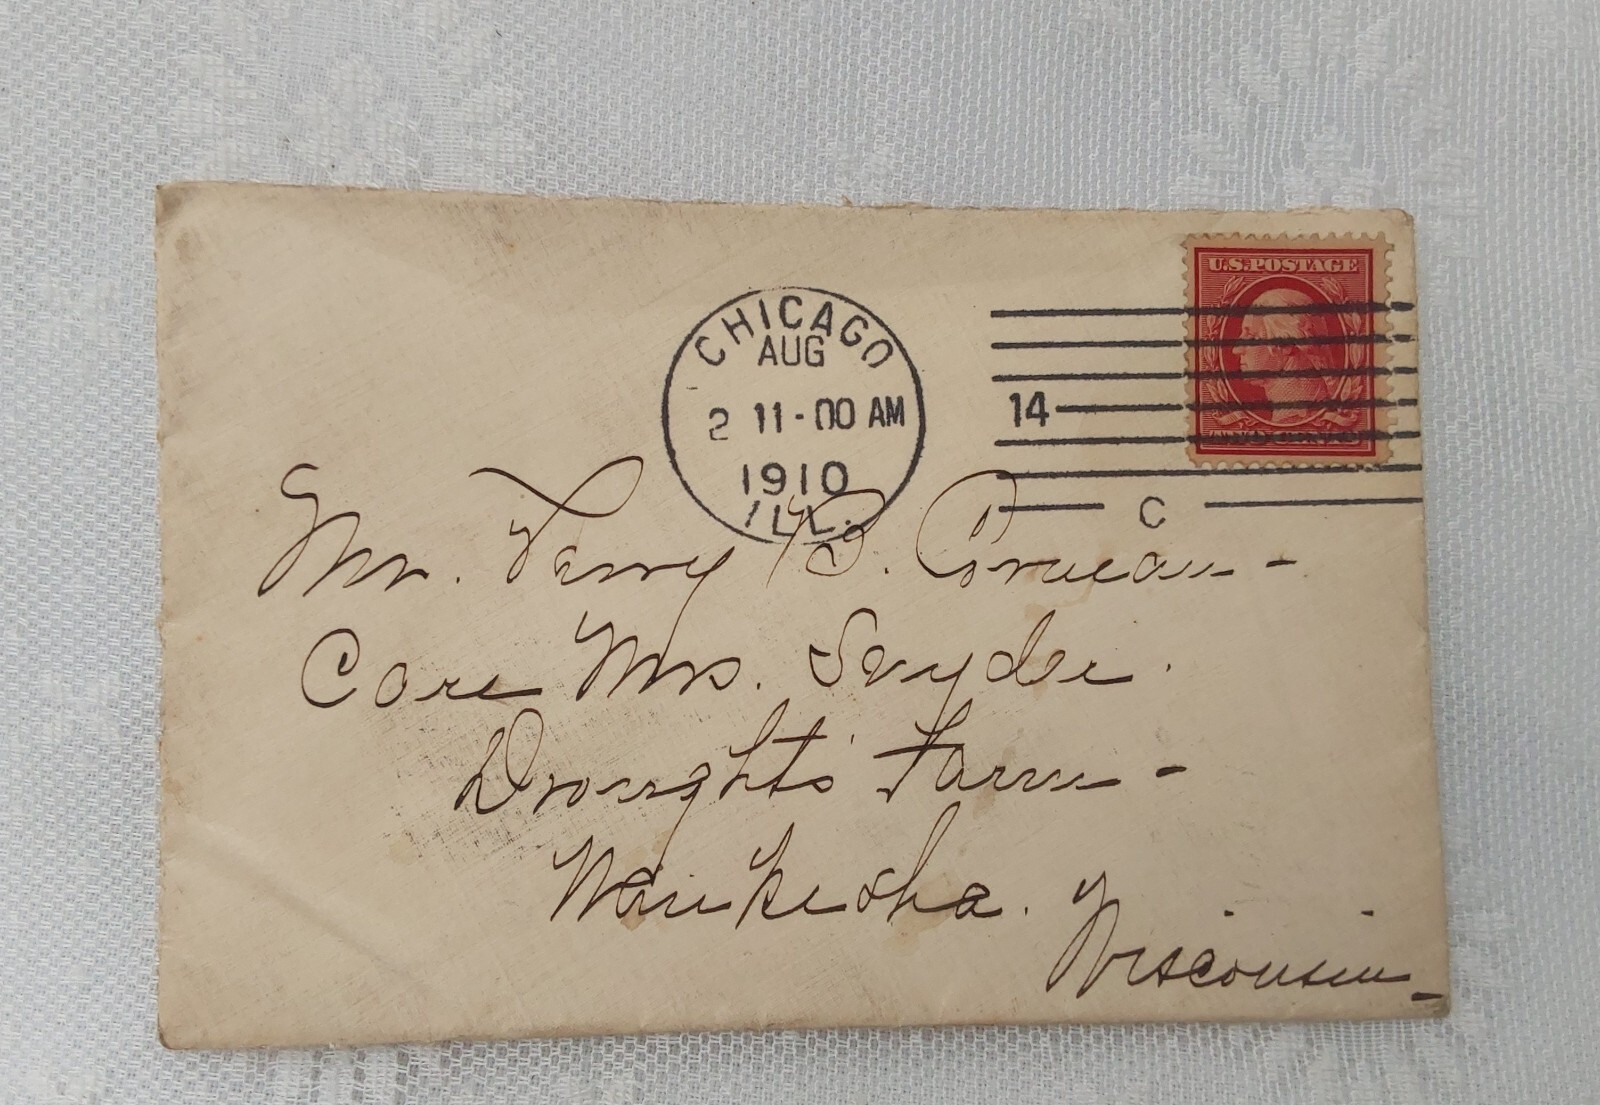 U.S.POSTAGE
CHICAGO
AUG
2 11-00 AM
1910
ILL.
14
C
Mr. Harry B.
Care Mrs. Snyder.
Drought's Farm -
Waukesha. Wisconsin -